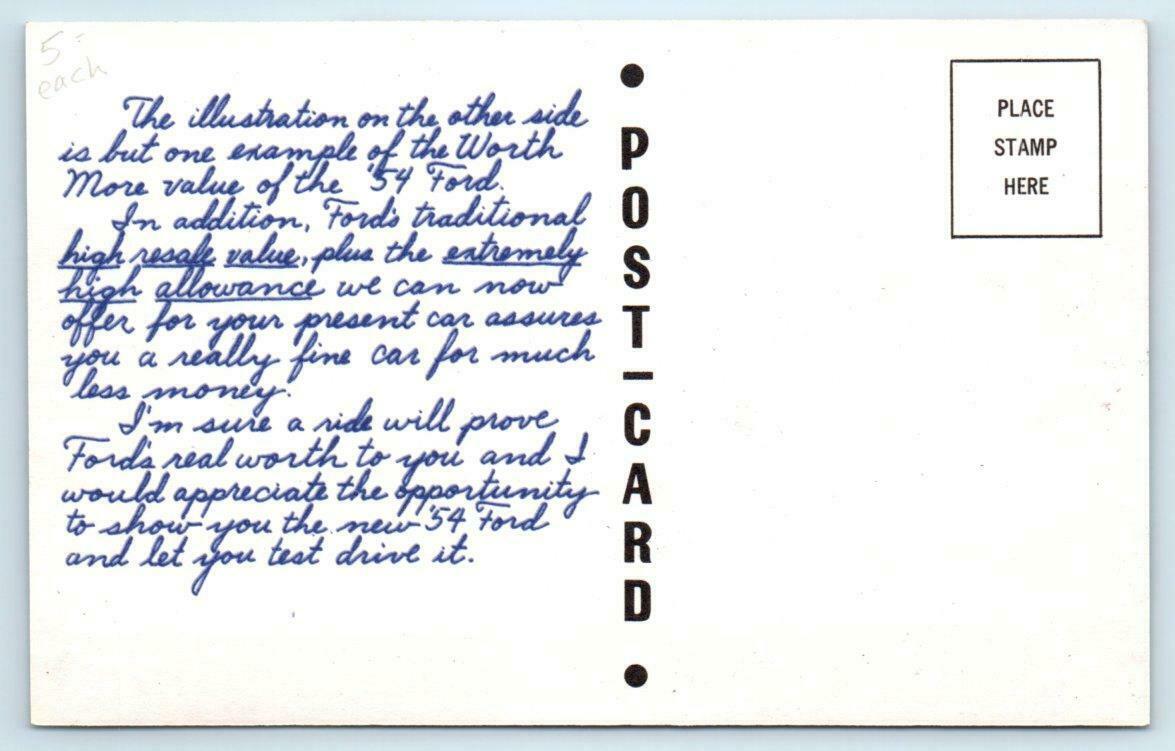 5-
each
The illustration on the other side
is but one example of the Worth
More value of the '54 Ford.
In addition, Ford's traditional
high resale value, plus the extremely
high allowance we can now
offer for your present car assures
you a really fine car for much
less money.
I'm sure a ride will prove
Ford's real worth to you and I
would appreciate the opportunity
to show you the new '54 Ford
and let you test drive it.
POST-CARD
PLACE
STAMP
HERE